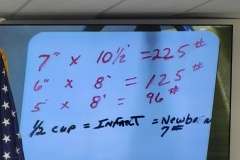 7" x 10½' = 225 #
6" x 8' = 125 #
5 x 8' = 96 #
½ cup = INFANT = Newborn
7 #